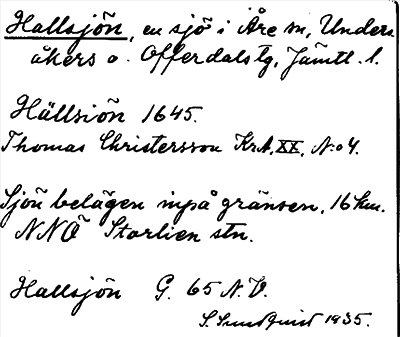 Hallsjön, en sjö i Åre sn, Unders
åkers o. Offerdals tg, Jämtl. l.
Hällsiön 1645.
Thomas Christersson Kr.A. XX, N:o 4.
Sjön belägen inpå gränsen, 16 km.
NNÖ Storlien stn.
Hallsjön G. 65 N.V.
S. Sundquist 1935.